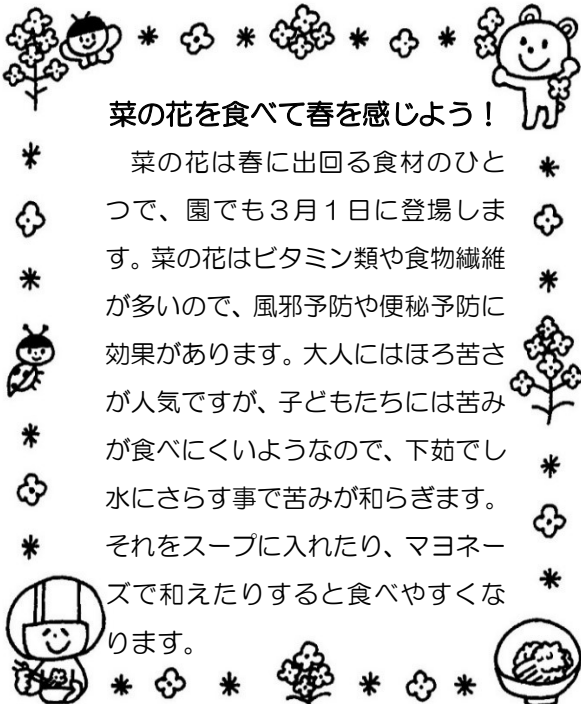 菜の花を食べて春を感じよう！
　菜の花は春に出回る食材のひと
つで、園でも３月１日に登場しま
す。菜の花はビタミン類や食物繊維
が多いので、風邪予防や便秘予防に
効果があります。大人にはほろ苦さ
が人気ですが、子どもたちには苦み
が食べにくいようなので、下茹でし
水にさらす事で苦みが和らぎます。
それをスープに入れたり、マヨネー
ズで和えたりすると食べやすくな
ります。